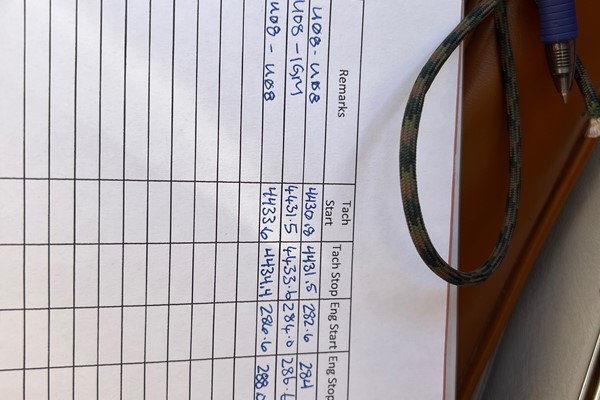 Remarks Tach Start Tach Stop Eng Start Eng Stop
U08 - U08 4431.5 282.6 284
U08 - IGM 4431.5 4433.6 284.0 286.6
U08 - U08 4433.6 4434.4 286.6